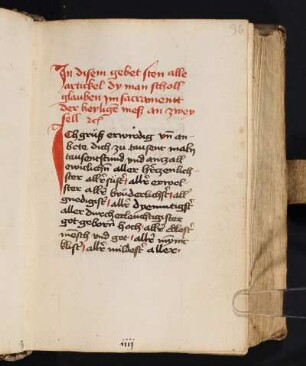 36
In disem gebet sten alle
artickel dy man scholl
glauben im sacrament
der heylige mess an zwey
fell
Ich grüß erwirdig vn an
bete dich zu tausent maln
tausentstund vnd anczall
ewiclichn aller herczenlich
ster allr süst allr
ster allr brüderlichst all
gnedigst allr dyemutigst
aller durcherleuchtigster
got geborn hoch allr edlest
mensch vnd got allr
allr mildest aller
IIII